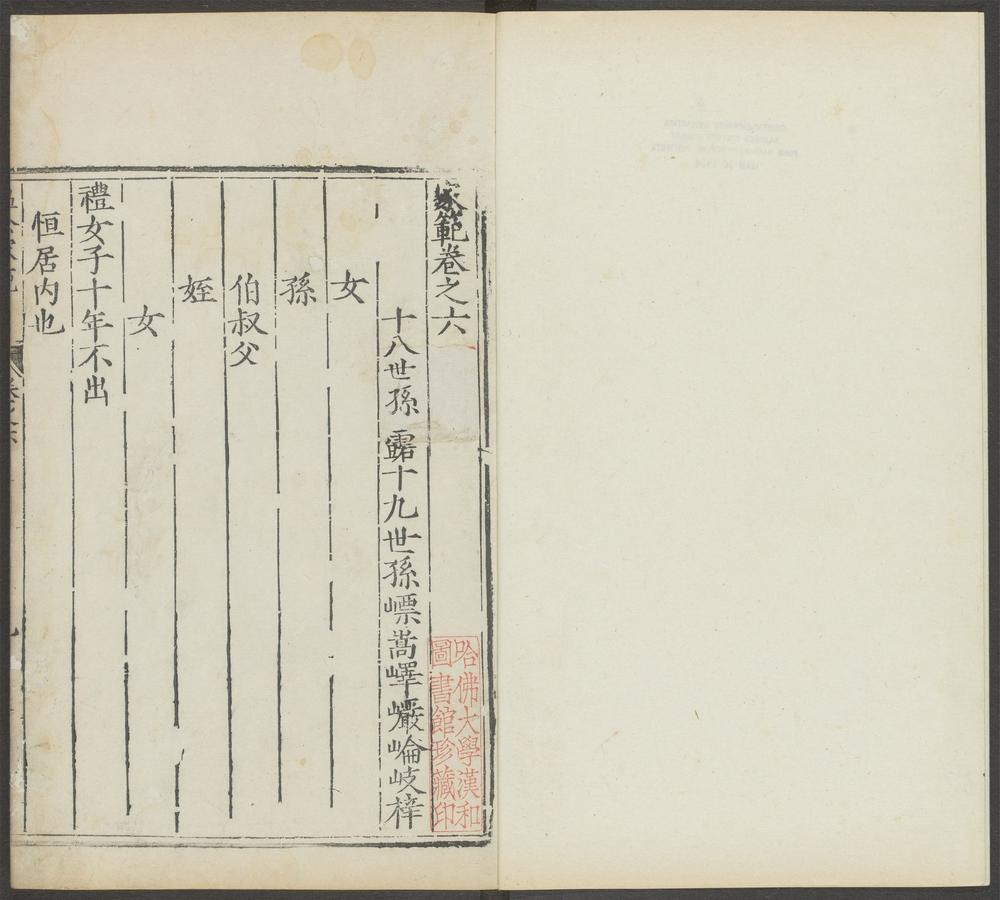 家範卷之六
哈佛大學漢和
圖書館珍藏印
十八世孫 露十九世孫嶛嵩嶧巖崘岐梓
女
孫
伯叔父
姪
女
禮女子十年不出
恒居內也